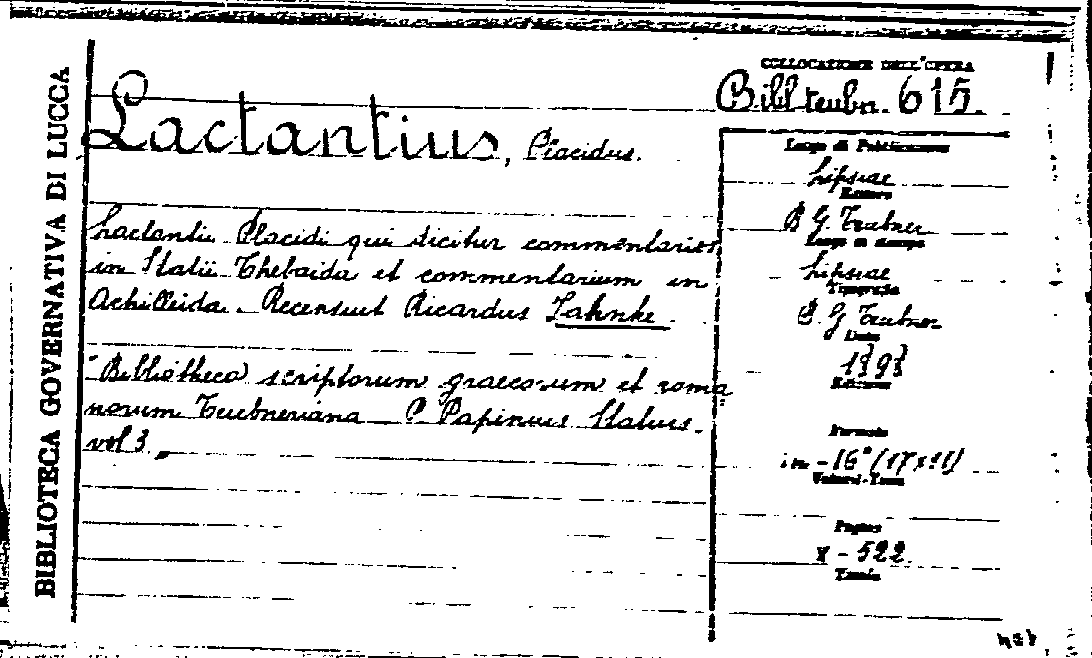 BIBLIOTECA GOVERNATIVA DI LUCCA
COLLOCAZIONE DELL'OPERA
Bibl. teubn. 615.
Lactantius, Placidus.
Lactantii Placidi qui dicitur commentarios
in Statii Thebaida et commentarium in
Achilleida. Recensuit Ricardus Jahnke.
"Bibliotheca scriptorum graecorum et roma
norum Teubneriana P. Papinius Statius.
vol 3.
Luogo di Pubblicazione
Lipsiae
Editore
B G. Teubner
Luogo di stampa
Lipsiae
Tipografo
B. G Teubner
Data
1898
Edizione
Formato
in-16° (17x11)
Volumi-Tomi
Pagine
X-522
Tavole